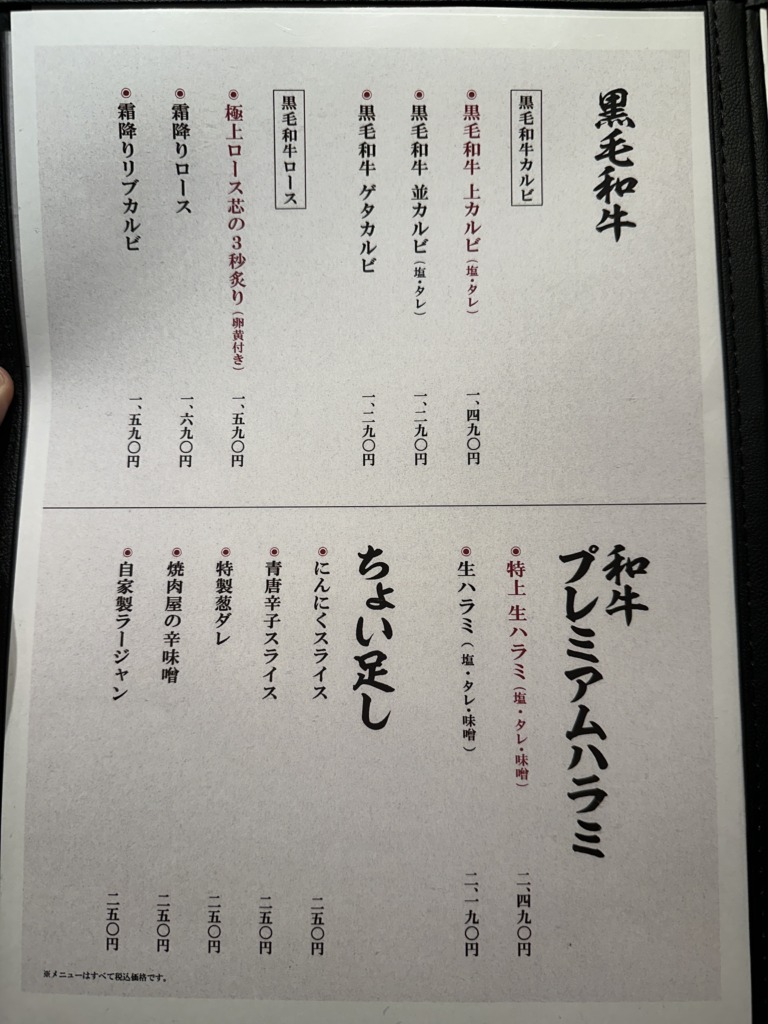 黒毛和牛
黒毛和牛カルビ
◉黒毛和牛 上カルビ（塩・タレ） 一、四九〇円
◉黒毛和牛 並カルビ（塩・タレ） 一、二九〇円
◉黒毛和牛 ゲタカルビ 一、二九〇円
黒毛和牛ロース
◉極上ロース芯の3秒炙り（卵黄付き） 一、五九〇円
◉霜降りロース 一、六九〇円
◉霜降りリブカルビ 一、五九〇円
和牛
プレミアムハラミ
◉特上 生ハラミ（塩・タレ・味噌） 二、四九〇円
◉生ハラミ（塩・タレ・味噌） 二、一九〇円
ちょい足し
◉にんにくスライス 二五〇円
◉青唐辛子スライス 二五〇円
◉特製葱ダレ 二五〇円
◉焼肉屋の辛味噌 二五〇円
◉自家製ラージャン 二五〇円
※メニューはすべて税込価格です。